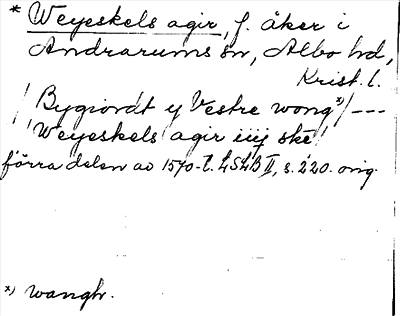 * Weyeskels agir, f. åker i
Andrarums sn, Albo hd,
Krist. l.
/ Bygiordt y Vestre wong x) / ---
/ Weyeskels agir iiij ske /
förra delen av 1570-t. LSLB II, s. 220. orig.
x) wangh.